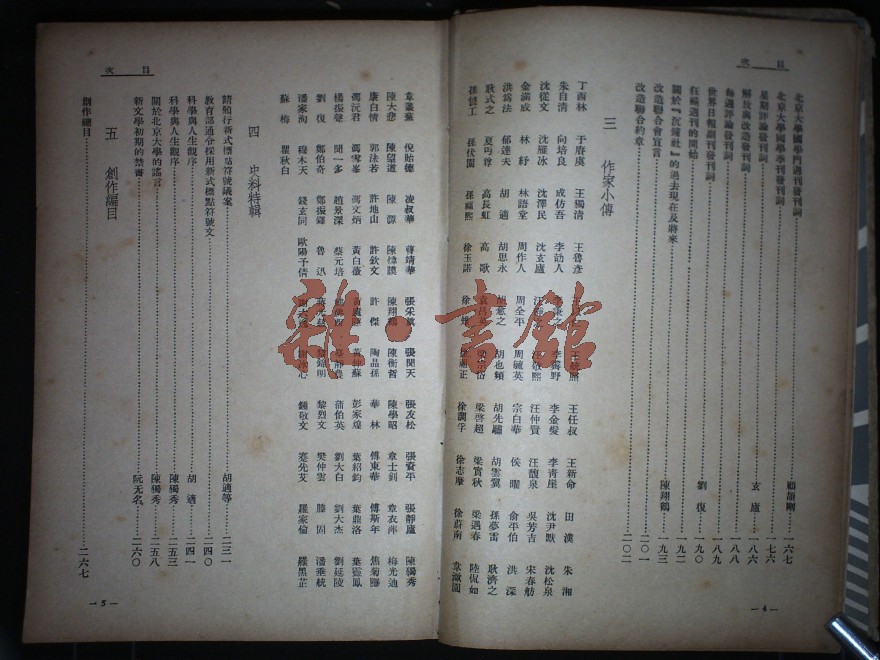 目次
北京大學國學門週刊發刊詞 顧頡剛 一六七
北京大學國學季刊發刊詞 一七六
星期評論發刊詞 玄廬 一八六
解放與改造發刊詞 一八八
每週評論發刊詞 一八九
世界日報副刊發刊詞 劉復 一九〇
狂飆週刊的開始 一九二
關於『沉鐘社』的過去現在及將來 陳翔鶴 一九三
改造聯合會宣言 二〇一
改造聯合約章 二〇二
三 作家小傳
丁西林 于賡虞 王獨清 王魯彥 王統照 王任叔 王新命 田漢 朱湘
朱自清 向培良 成仿吾 李劼人 李霽野 李金髮 李青崖 沈尹默 沈松泉
沈從文 沈雁冰 沈澤民 沈玄廬 汪靜之 汪敬熙 汪仲賢 汪馥泉 吳芳吉 宋春舫
金滿成 林紓 林語堂 周作人 周全平 周毓英 宗白華 侯曜 俞平伯 洪深
洪爲法 郁達夫 胡適 胡思永 胡愈之 胡也頻 胡先驌 胡雲翼 孫夢雷 耿濟之
耿式之 夏丏尊 高長虹 高歌 袁昌英 梁宗岱 梁啓超 梁實秋 梁遇春 陸侃如
孫俍工 孫伏園 孫福熙 徐玉諾 徐雉 徐祖正 徐調孚 徐志摩 徐蔚南 韋漱園
—4—
目次
韋叢蕪 倪貽德 凌叔華 張采真 張聞天 張友松 張資平 張靜廬 陳獨秀
陳大悲 陳望道 陳源 陳煒謨 陳翔鶴 陳衡哲 陳學昭 章士釗 章衣萍 梅光迪
康白情 郭沫若 許地山 許欽文 許傑 陶晶孫 華林 傅東華 傅斯年 焦菊隱
馮沅君 馮雪峯 馮文炳 黃白薇 黃廬隱 黃仲蘇 彭家煌 葉紹鈞 葉鼎洛 葉靈鳳
楊振聲 聞一多 趙景深 蔡元培 臺靜農 蒲伯英 劉大白 劉大杰 劉延陵
劉復 鄭伯奇 鄭振鐸 魯迅 黎錦明 黎烈文 樊仲雲 滕固 潘垂統
潘家洵 穆木天 錢玄同 歐陽予倩 謝冰心 鍾敬文 蹇先艾 羅家倫 羅黑芷
蘇梅 瞿秋白
四 史料特輯
請頒行新式標點符號議案 胡適等 二三一
教育部通令採用新式標點符號文 二四〇
科學與人生觀序 胡適 二四一
科學與人生觀序 陳獨秀 二五三
關於北京大學的謠言 陳獨秀 二五八
新文學初期的禁書 阮无名 二六〇
五 創作編目
創作總目 二六七
—5—
雜·書館